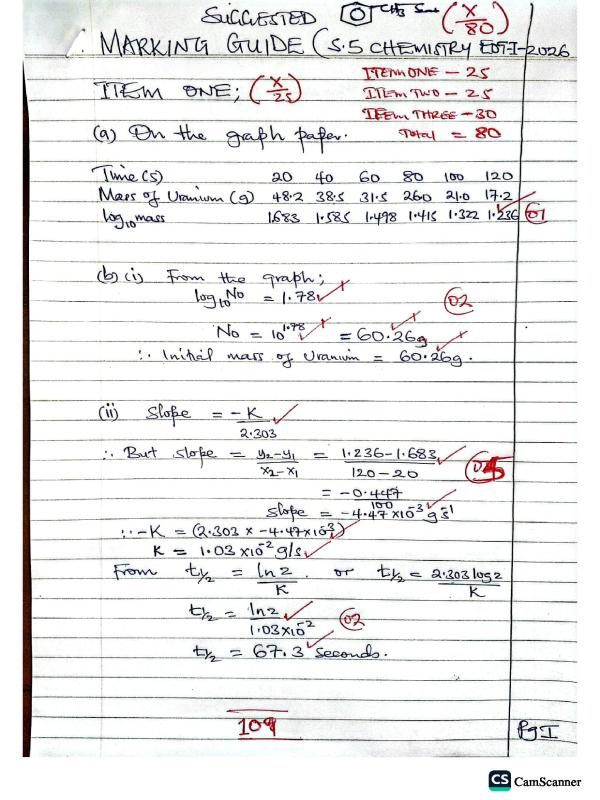 SUGGESTED CH3 (X/80)
MARKING GUIDE (S.5 CHEMISTRY EOT-I-2026
ITEM ONE - 25
ITEM ONE; (X/25) ITEM TWO - 25
ITEM THREE - 30
(a) On the graph paper. Total = 80
Time (s) 20 40 60 80 100 120
Mass of Uranium (g) 48.2 38.5 31.5 26.0 21.0 17.2
log10 mass 1.683 1.585 1.498 1.415 1.322 1.236 01
(b) (i) From the graph;
log10 No = 1.78
02
No = 10^1.78 = 60.26g
∴ Initial mass of Uranium = 60.26g.
(ii) Slope = -K/2.303
∴ But slope = y2-y1/x2-x1 = 1.236-1.683/120-20
= -0.447/100
Slope = -4.47 x10^-3 g s^-1
∴ -K = (2.303 x -4.47x10^-3)
K = 1.03 x10^-2 g/s
From t1/2 = ln2/K. or t1/2 = 2.303 log2/K
t1/2 = ln2/1.03x10^-2 02
t1/2 = 67.3 seconds.
109
Pg I
CS CamScanner